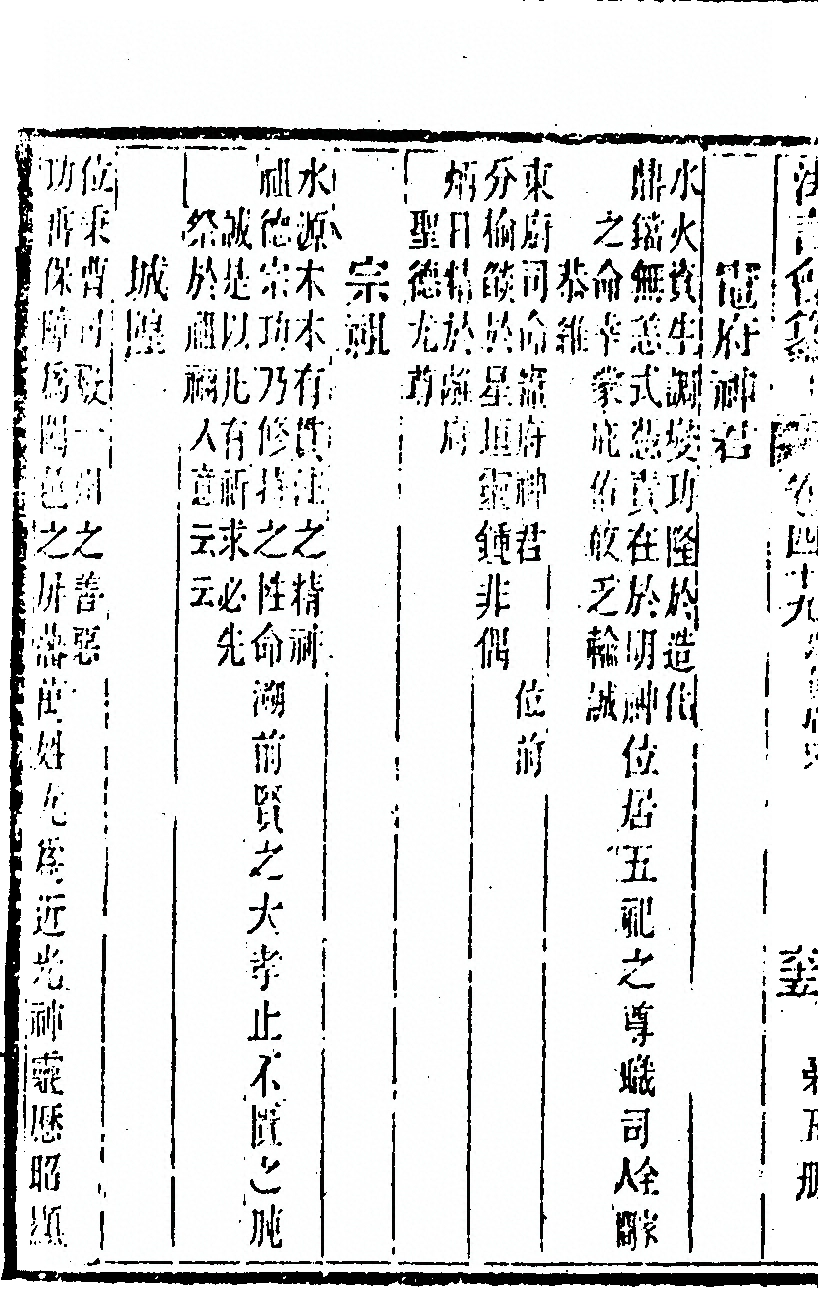 卷四十九
竈府神君
水火資生調燮功隆於造化
鼎鐺無恙式憑責在於明神位居五祀之尊職司人全家
之命幸蒙庇佑敢乏輸誠
恭維
東廚司命竈府神君 位前
分榆燄於星垣靈鍾非偶
炳日精於離府
聖德尤尊
宗祖
水源木本有貫注之精神
祖德宗功乃修持之性命溯前賢之大孝止不匱之肫
誠是以凡有祈求必先
祭於祖禰人意云云
城隍
位秉曹司馭一州之善惡
功書保障為閤邑之屏藩萬姓允為近光神靈歷昭顯